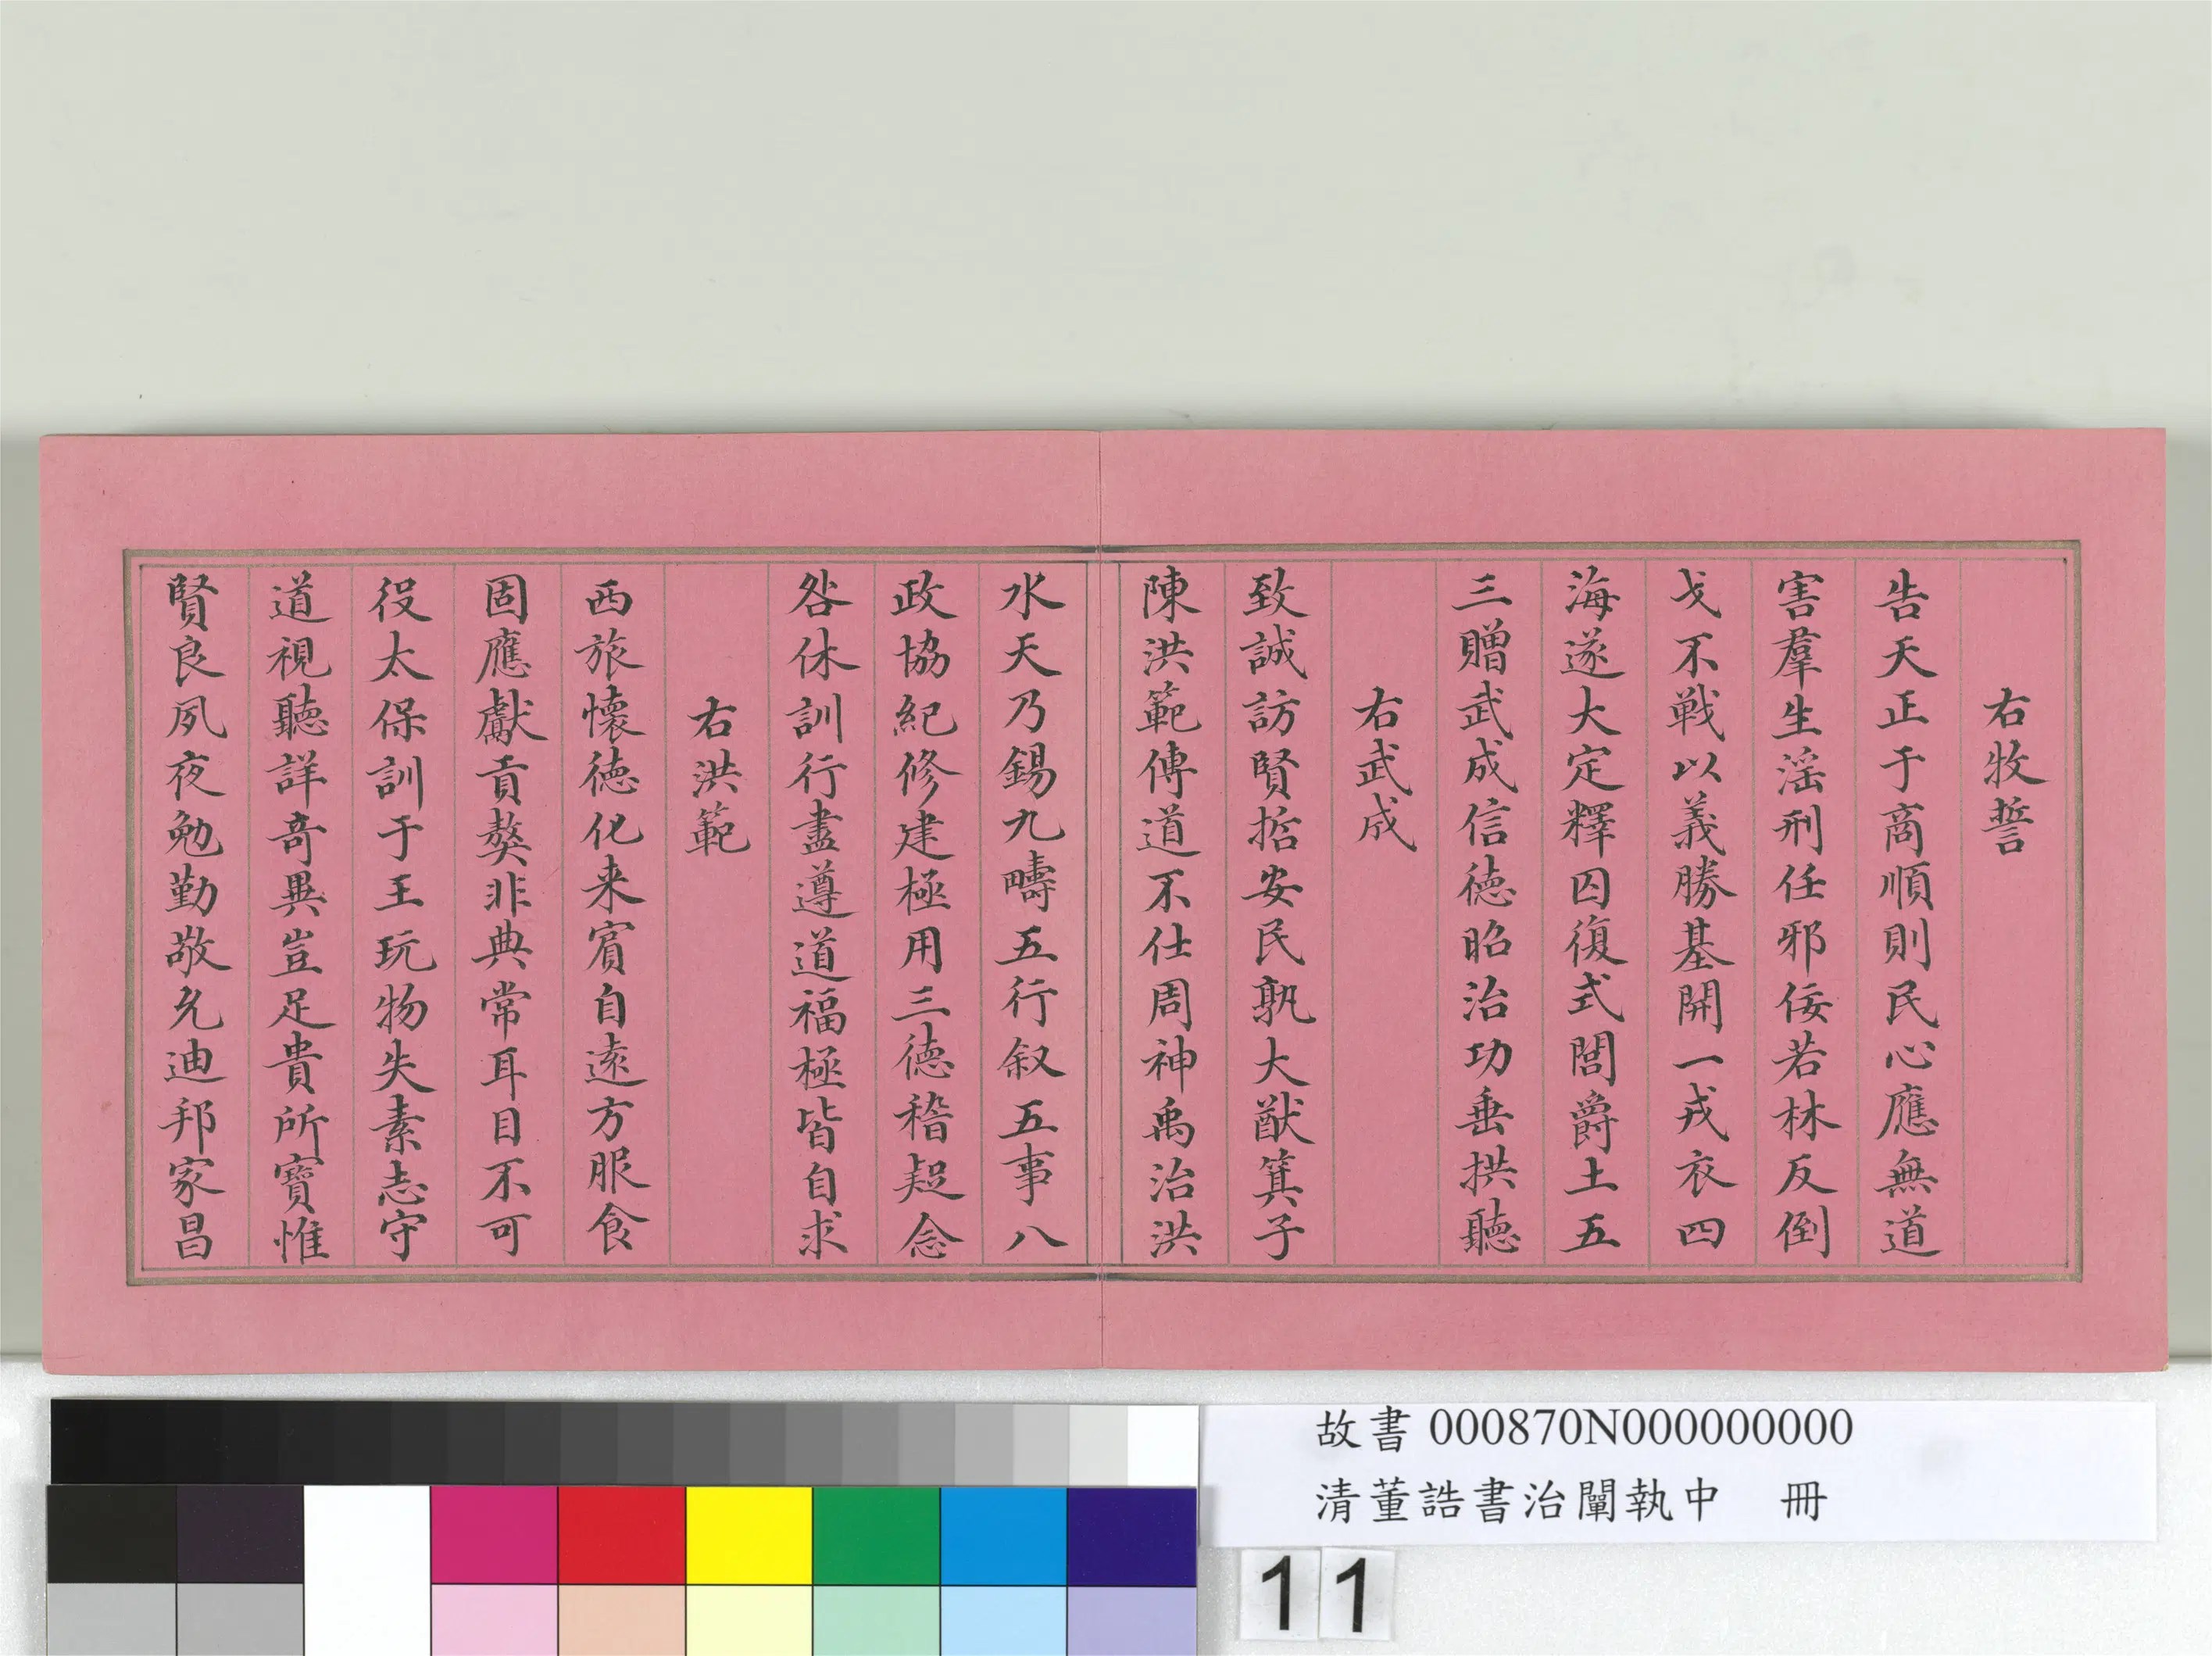 右牧誓
告天正于商順則民心應無道
害羣生滛刑任邪佞若林反倒
戈不戰以義勝基開一戎衣四
海遂大定釋囚復式閭爵土五
三贈武成信德昭治功垂拱聽
右武成
致誠訪賢哲安民孰大猷箕子
陳洪範傳道不仕周神禹治洪
水天乃錫九疇五行叙五事八
政協紀修建極用三德稽疑念
咎休訓行盡遵道福極皆自求
右洪範
西旅懷德化来賓自遠方服食
固應獻貢獒非典常耳目不可
役太保訓于王玩物失素志守
道視聽詳奇異豈足貴所寶惟
賢良夙夜勉勤敬允迪邦家昌
故書 000870N000000000
清董誥書治闡執中 冊
11